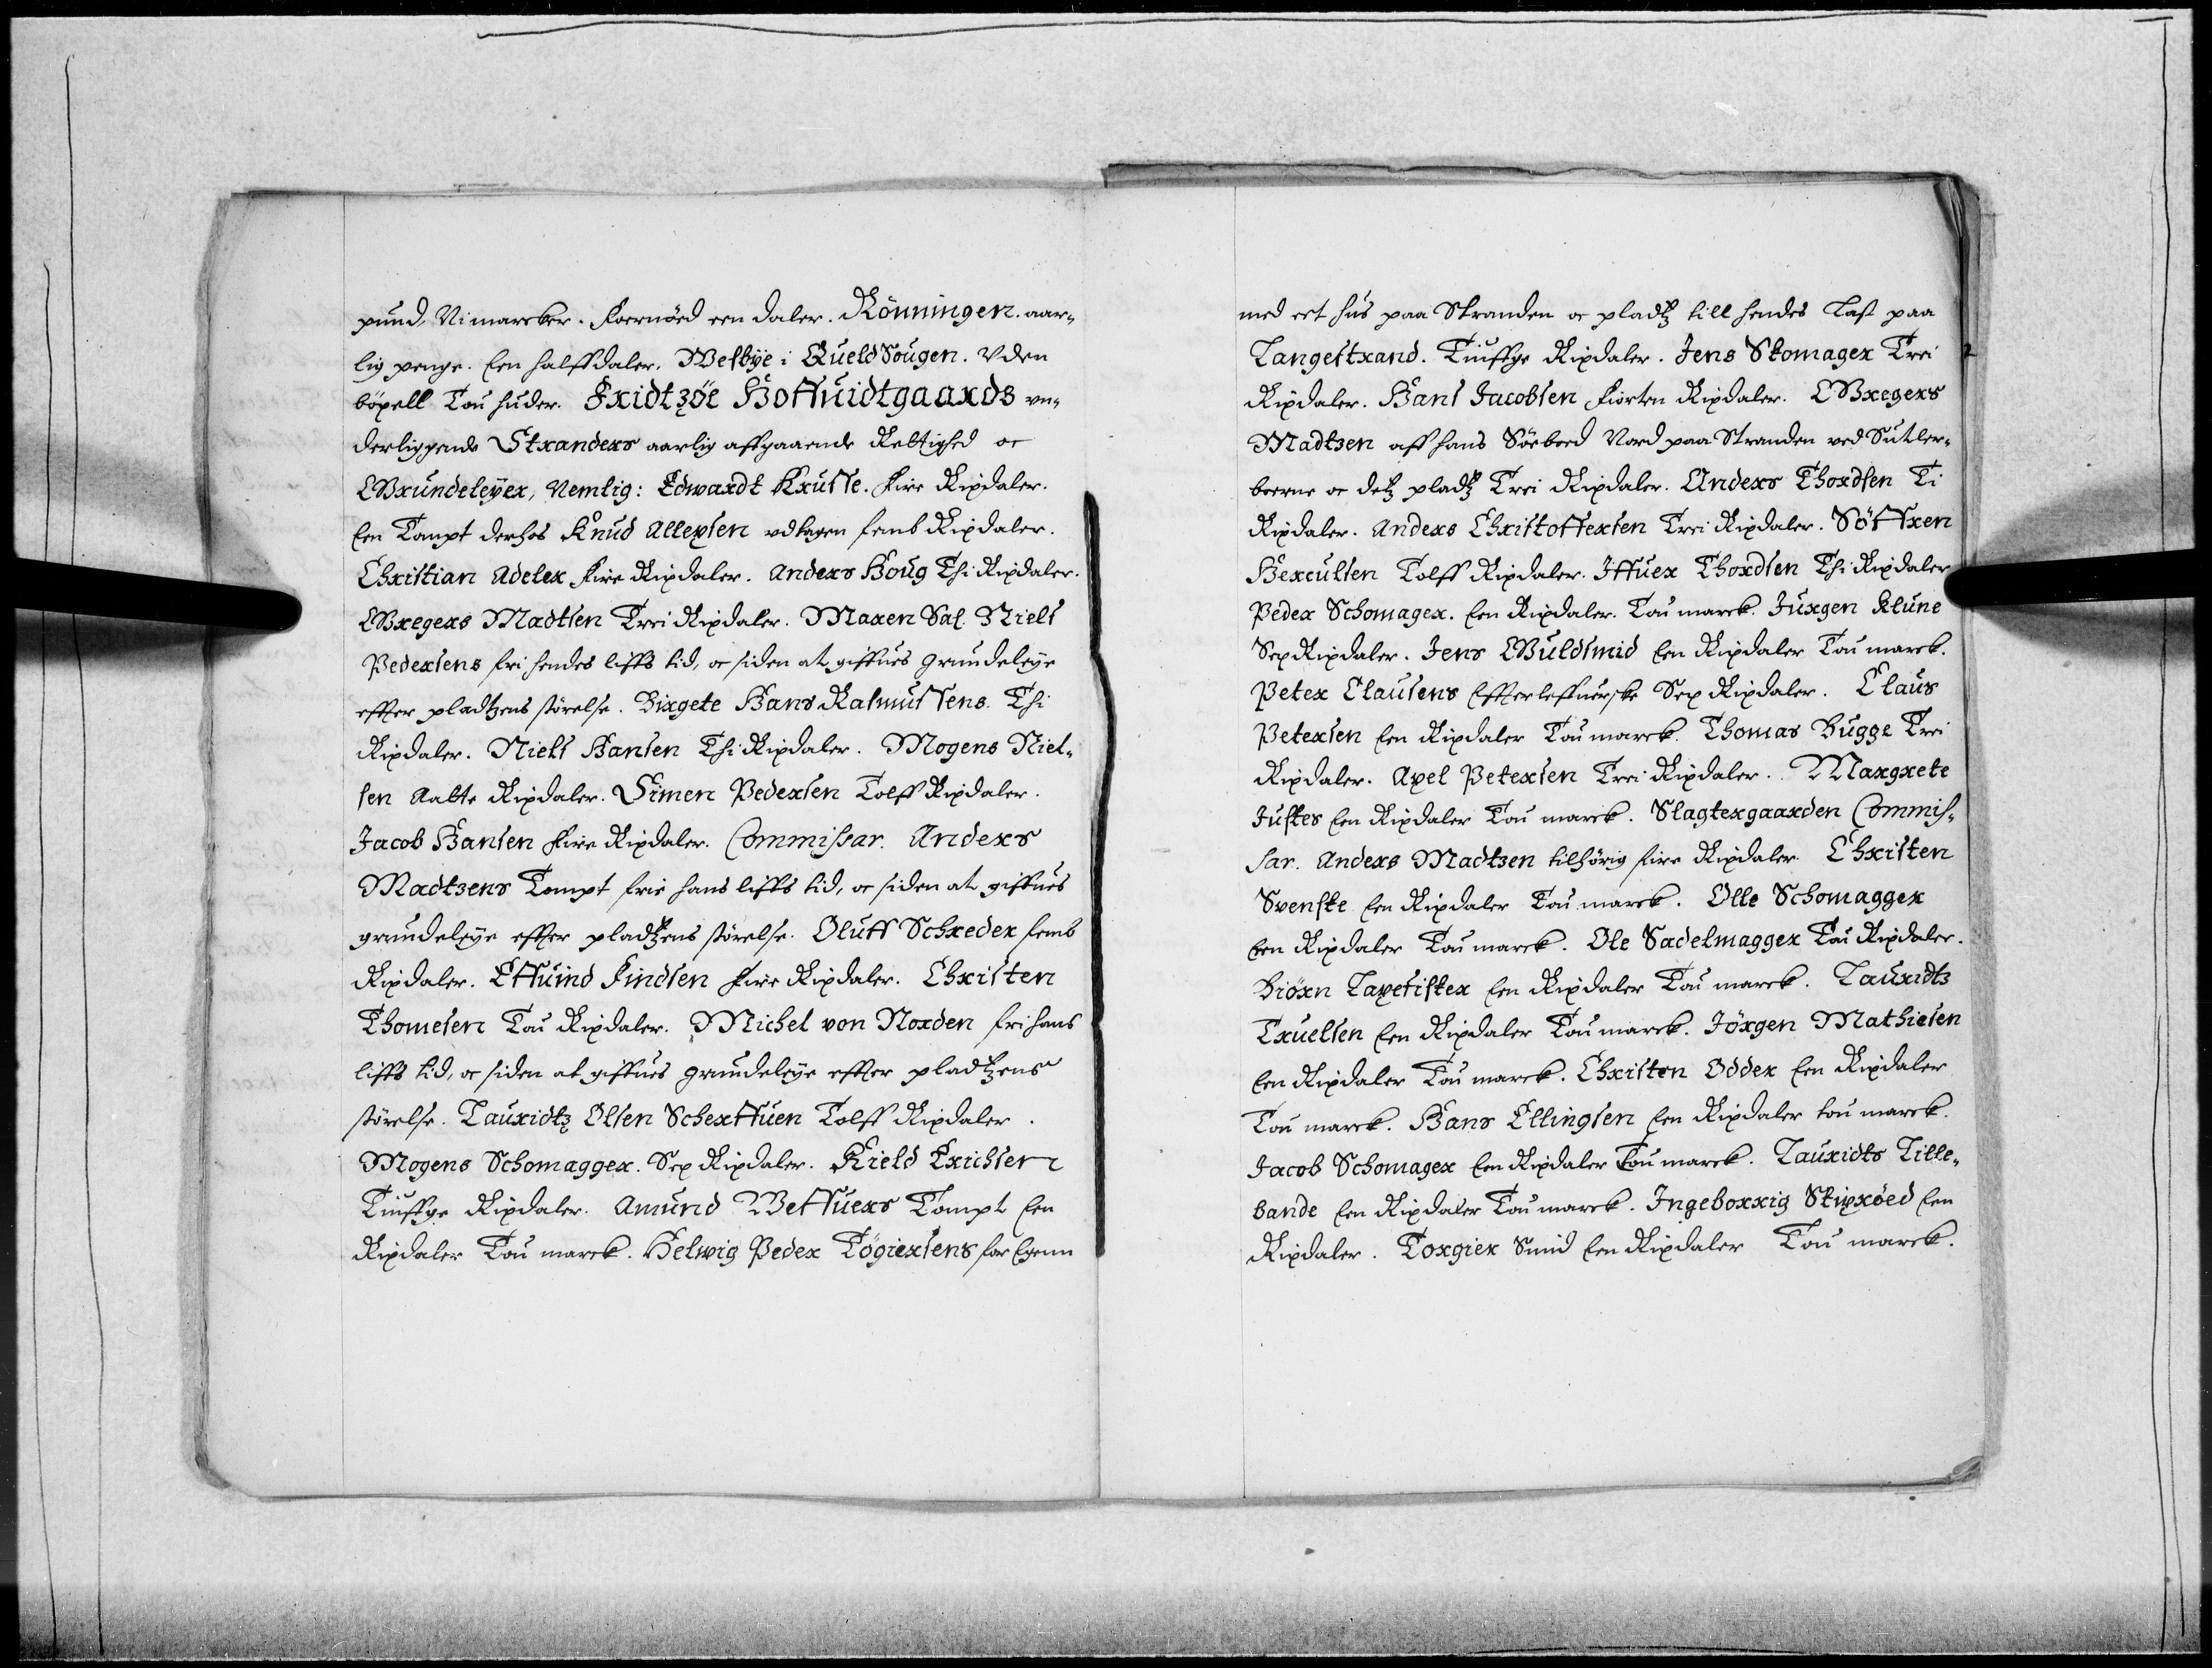 pund, Ni marcker. Foernöed een daler. Rönningen. aar-
lig penge. Een halff daler. Melbÿe i QueldSougen. Vden
böxell Tou huder. Fridtzöe Hoffuidtgaards vn-
derliggende Stranders aarlig affgaaende Rettighed oc
Grundeleÿer, Nemlig: Edwardt Krusse. Fire Rixdaler.
Een Tompt derhos Knud Allexsen vdtagen femb Rixdaler.
Christian Adeler Fire Rixdaler. Anders Houg Thi Rixdaler.
Gregers Madtsen Trei Rixdaler. Maren Sal. Niels
Pedersens fri hendes liffs tid, oc siden at giffues Grundeleÿe
effter pladtzens störelse. Birgete Hans Rasmussens. Thi
Rixdaler. Niels Hansen Thi Rixdaler. Mogens Niel-
sen Aatte Rixdaler. Simen Pedersen Tolff Rixdaler.
Jacob Hansen Fire Rixdaler. Commissar. Anders
Madtzens Tompt frie hans liffs tid, oc siden at giffues
grundeleÿe effter pladtzens störelse. Oluff Schreder femb
Rixdaler. Effuind Findsen Fire Rixdaler. Christen
Thomesen Tou Rixdaler. Michel von Norden fri hans
liffs tid, oc siden at giffues Grundeleÿe effter pladtzens
störelse. Lauridtz Olsen Scherffuen Tolff Rixdaler.
Mogens Schomagger. Sex Rixdaler. Kield Erichsen
Tiuffge Rixdaler. Amund Weffuers Tompt Een
Rixdaler Tou marck. Helwig Peder Tögiersens for Egenn
med eet hus paa Stranden oc pladtz till hendes Last paa
Langestrand. Tiuffge Rixdaler. Jens Skomager Trei
Rixdaler. Hans Jacobsen Fiorten Rixdaler. Gregers
Madtzen aff hans Söeboed Nord paa Stranden ved Sutler-
boerne oc detz pladtz Trei Rixdaler. Anders Thordsen Ti
Rixdaler. Anders Christoffersen Trei Rixdaler. Söffren
Herculsen Tolff Rixdaler. Iffuer Thordsen Thi Rixdaler
Peder Schomager. Een Rixdaler. Tou marck. Jurgen Klune
Sex Rixdaler. Jens Guldsmid Een Rixdaler Tou marck.
Peter Clausens Effterleffuerske Sex Rixdaler. Claus
Petersen Een Rixdaler Tou marck. Thomas Bugge Trei
Rixdaler. Axel Petersen Trei Rixdaler. Margrete
Justes Een Rixdaler Tou marck. Slagtergaarden Commis-
sar. Anders Madtzen tilhörig fire Rixdaler. Christen
Svenske Een Rixdaler Tou marck. Olle Schomagger
Een Rixdaler Tou marck. Ole Sadelmagger Tou Rixdaler.
Biörn Laxefisker Een Rixdaler Tou marck. Lauridtz
Truelsen Een Rixdaler Tou marck. Jörgen Mathiesen
Een Rixdaler Tou marck. Christen Odder Een Rixdaler
Tou marck. Hans Ellingsen Een Rixdaler tou marck.
Jacob Schomager Een Rixdaler Tou marck. Lauridts Lille-
bande Een Rixdaler Tou marck. Ingeborrig Stixröed Een
Rixdaler. Torgier Smid Een Rixdaler Tou marck.